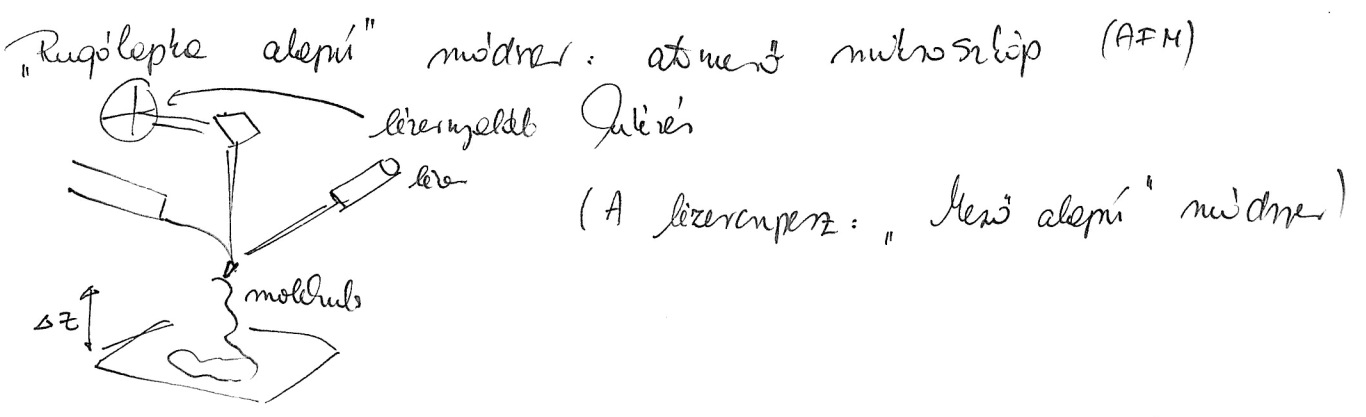 „Rugólapka alapú" módszer: atomerő mikroszkóp (AFM)
lézernyaláb
lézer
(A lézercsipesz: „Mező alapú" módszer)
molekula
Δz